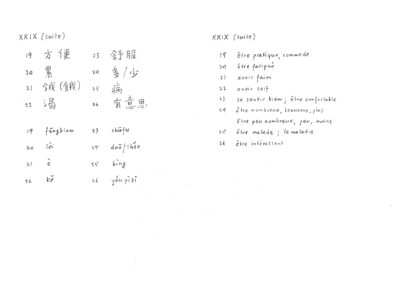 XXIX (suite)
19 方便 23 舒服
20 累 24 多/少
21 饿(餓) 25 病
22 渴 26 有意思
19 fāngbiàn 23 shūfu
20 lèi 24 duō/shǎo
21 è 25 bìng
22 kě 26 yǒu yìsi
XXIX (suite)
19 être pratique, commode
20 être fatigué
21 avoir faim
22 avoir soif
23 se sentir bien ; être confortable
24 être nombreux, beaucoup, plus
être peu nombreux, peu, moins
25 être malade ; la maladie
26 être intéressant